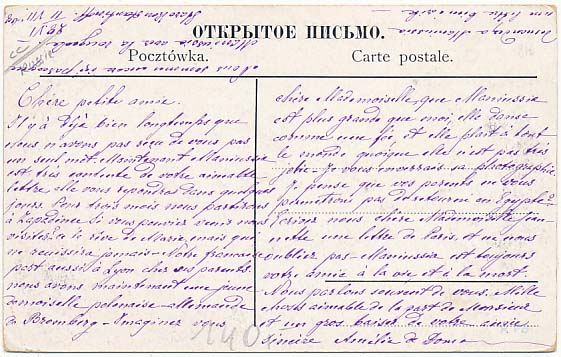 ОТКРЫТОЕ ПИСЬМО.
Pocztówka.
Carte postale.
Chère petite amie.
Il y a déjà bien longtemps que
nous n'avons pas reçu de vous pas
un seul mot. Maintenant Maniussia
est très contente de votre aimable
lettre elle vous repondra dans quelques
jours. Pour trois mois nous partirons
à Si vous pouviez venir nous
visiter? c. le rêve de Marie, mais qui
ne reussira jamais. Notre française
part aussi à Lyon chez ses parents.
nous avons maintenant une jeune
demoiselle polonaise-allemande
de Bromberg. Imaginez vous
chère Mademoiselle, que Maniussia
est plus grande que moi, elle danse
comme une fée et elle plait à tout
le monde quoique elle n'est pas très
jolie. Je vous enverrais sa photographie.
Je pense que vos parents ne vous
permetront pas de retourner en Egypte?
Ecrivez nous chère Mademoiselle Jean-
nette une lettre de Paris, et ne nous
oublier pas. Maniussia est toujours
votre amie à la vie et à la mort.
Nous parlons souvent de vous. Mille
choses aimable de la part de Monsieur
et un gros baiser de votre amie
sincère Amélie de